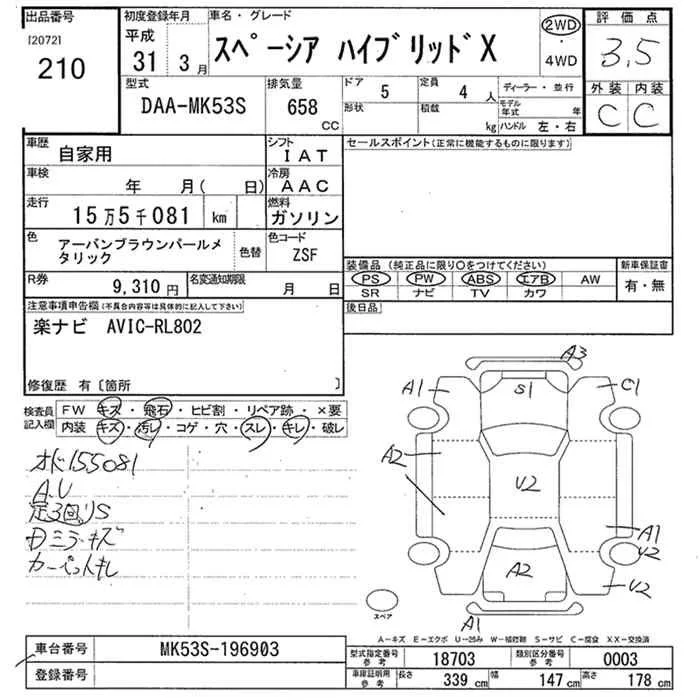 出品番号
[2072]
210
初度登録年月
平成
31 3月
車名・グレード
スペーシア ハイブリッドX
2WD
・
4WD
評価点
3.5
外装 内装
C C
型式
DAA-MK53S
排気量
658 CC
ドア
5
定員
4人
形状
積載
kg
ディーラー・並行
モデル年式 年
ハンドル 左・右
車歴
自家用
シフト
IAT
車検
年 月( 日)
冷房
AAC
走行
15万5千081 km
燃料
ガソリン
色
アーバンブラウンパールメタリック
色替
色コード
ZSF
R券
9,310円
名変通知期限
月 日
セールスポイント(正常に機能するものに限ります)
装備品(純正品に限り○をつけてください)
PS PW ABS エアB AW
SR ナビ TV カワ
新車保証書
有・無
後日品
注意事項申告欄(不具合内容等は具体的に記入して下さい)
楽ナビ AVIC-RL802
修復歴 有〔箇所 〕
検査員記入欄
FW キズ・飛石・ヒビ割・リペア跡・×要
内装 キズ・汚レ・コゲ・穴・スレ・キレ・破レ
オド155081
A.U
定3回リS
Dミラーキズ
カーペットキレ
A3
A1 S1 C1
A2 U2
A1
U2
A2 U2
A1
スペア
A-キズ E-エクボ U-凹み W-補修跡 S-サビ C-腐食 XX-交換済
車台番号
MK53S-196903
登録番号
型式指定番号 参考
18703
類別区分番号 参考
0003
車庫証明用 参考
長さ 339 cm
幅 147 cm
高さ 178 cm